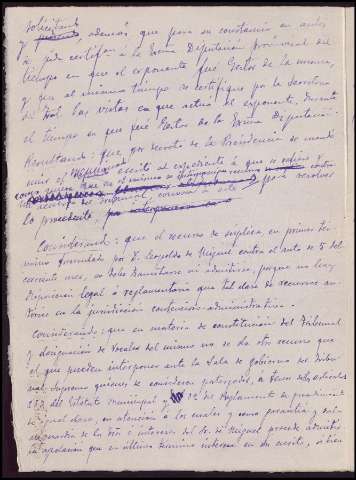 Solicitando
y además que para su constancia en autos
se pida certifon. á la Exma Diputación Provincial del
tiempo en que el exponente fué Gestor de la misma,
y que al mismo tiempo se certifique por la Secretaria
del Tral. las vistas en que actuó el exponente, durante
el tiempo en que fué Gestor de la Exma Diputación.
Resultando: que por decreto de la Presidencia se mandó
unir el escrito al expediente á que se refiere y
lo procedente
Considerando: que el recurso de súplica en primer tér-
mino formulado por D. Leopoldo de Miguel contra el auto de 9 del
corriente mes, no debe admitirse, porque no hay
disposición legal ó reglamentaria que tal clase de recursos au-
torice en la jurisdicción contencioso-administrativa.
Considerando: que en materia de constitución del Tribunal
y designación de Vocales del mismo no se da otro recurso que
el que pueden interponer ante la Sala de Gobierno del Tribu-
nal Supremo quienes se consideren postergados, a tenor de los articulos
253 del Estatuto Municipal y del Reglamento de procedimiento
de igual clase, en atención á los cuales y como garantia y sal-
vaguardia de los dros. é intereses del Sr. de Miguel procede admitir
la apelación que en último termino interpone en su escrito, si bien